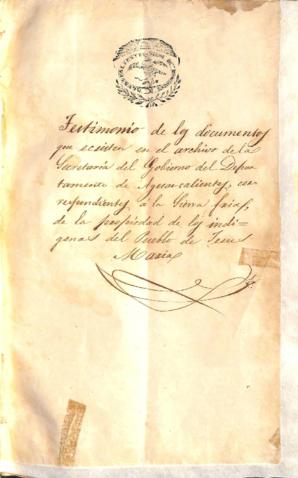 Testimonio de los documentos
que ecsisten en el archivo de la
Secretaría del Gobierno del Depar
tamento de Aguascalientes, cor
respondientes á la Sierra fria,
de la propiedad de los indi=
genas del Pueblo de Jesus
Maria